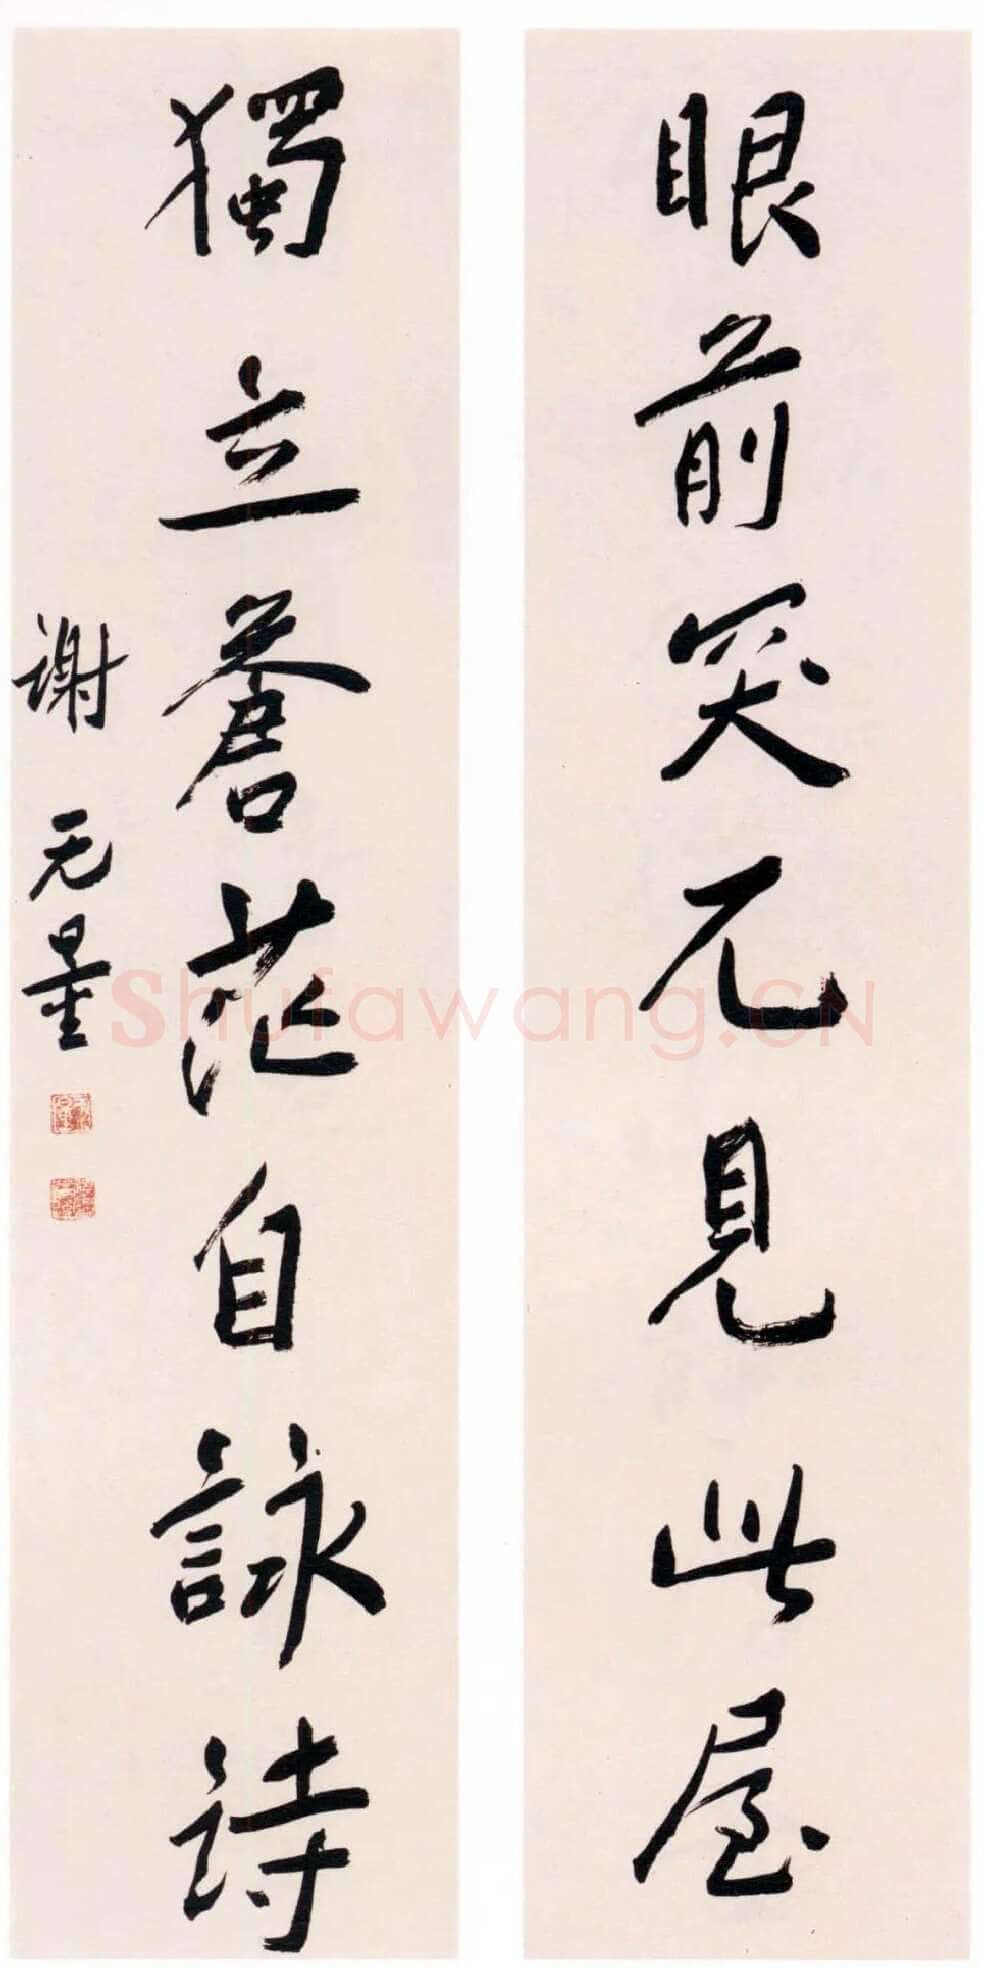 眼前突兀見此屋
獨立蒼茫自詠詩
谢无量
Shufawang.CN